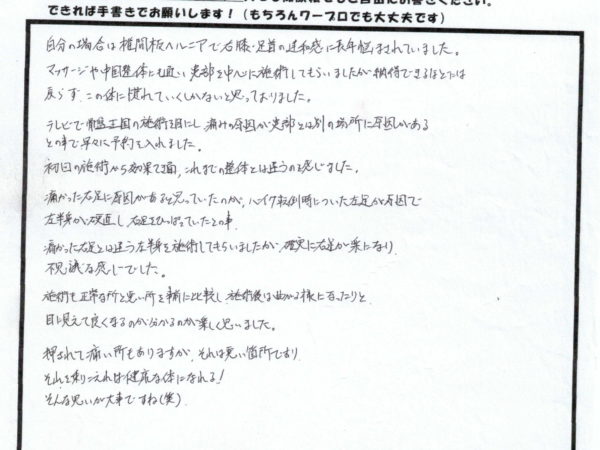 できれば手書きでお願いします！（もちろんワープロでも大丈夫です）
自分の場合は椎間板ヘルニアで右膝・足首の違和感に長年悩まされていました。
マッサージや中国整体にも通い患部を中心に施術してもらいましたが納得できるほどには
戻らず、この体に慣れていくしかないと思っておりました。
テレビで骨盤王国の施術を目にし、痛みの原因が患部とは別の場所に原因がある
との事で早々に予約を入れました。
初回の施術から効果てき面、これまでの整体とは違うのを感じました。
痛かった右足に原因があると思っていたのが、バイク転倒時についた左足が原因で
左半身が硬直し右足をひっぱっていたとの事
痛かった右足とは違う左半身を施術してもらいましたが、確実に右足が楽になり
不思議な感じでした。
施術も正常な所と悪い所を事前に比較し、施術後は曲がる様になったりと
目に見えて良くなるのが分かるのが楽しく思いました。
押されて痛い所もありますが、それは悪い箇所であり
それを乗りこえれば健康な体になれる！
そんな思いが大事ですね（笑）